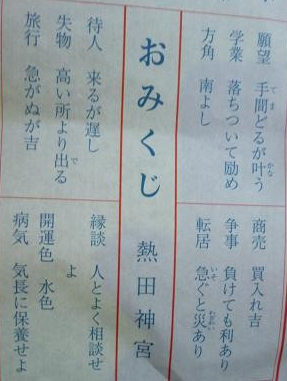 願望 手間どるが叶う
学業 落ちついて励め
方角 南よし
商売 買入れ吉
争事 負けても利あり
転居 急ぐと災あり
おみくじ 熱田神宮
待人 来るが遅し
失物 高い所より出る
旅行 急がぬが吉
縁談 人とよく相談せ
よ
開運色 水色
病気 気長に保養せよ